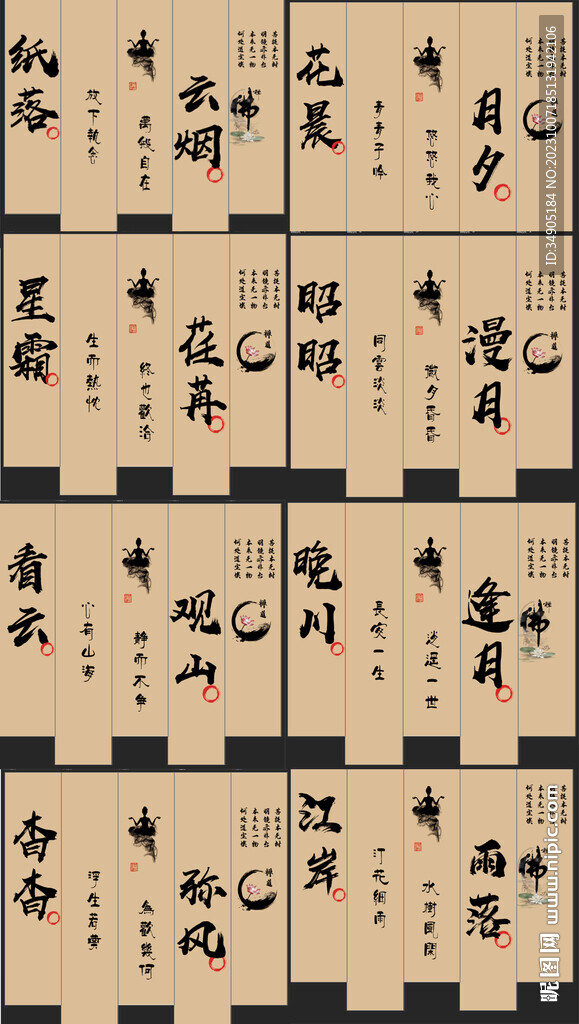 纸落
放下執念
萬般自在
云烟
菩提本无树
明镜亦非台
本来无一物
何处道尘埃
佛
花晨
月夕
悠悠我心
菩提本无树
明镜亦非台
本来无一物
何处道尘埃
星霜
生而熱忱
終也歡洽
荏苒
菩提本无树
明镜亦非台
本来无一物
何处道尘埃
禅道
昭昭
同雲淡淡
微夕香香
漫月
菩提本无树
明镜亦非台
本来无一物
何处道尘埃
禅道
看云
心有山海
静而不争
观山
菩提本无树
明镜亦非台
本来无一物
何处道尘埃
禅道
晚川
長安一生
逢月
菩提本无树
明镜亦非台
本来无一物
何处道尘埃
佛
杳杳
浮生若夢
為歡幾何
弥风
菩提本无树
明镜亦非台
本来无一物
何处道尘埃
禅道
江岸
汀花細雨
水樹風閑
雨落
菩提本无树
明镜亦非台
本来无一物
何处道尘埃
佛
ID:34905184 NO:20231007185131942106
昵图网 www.nipic.com